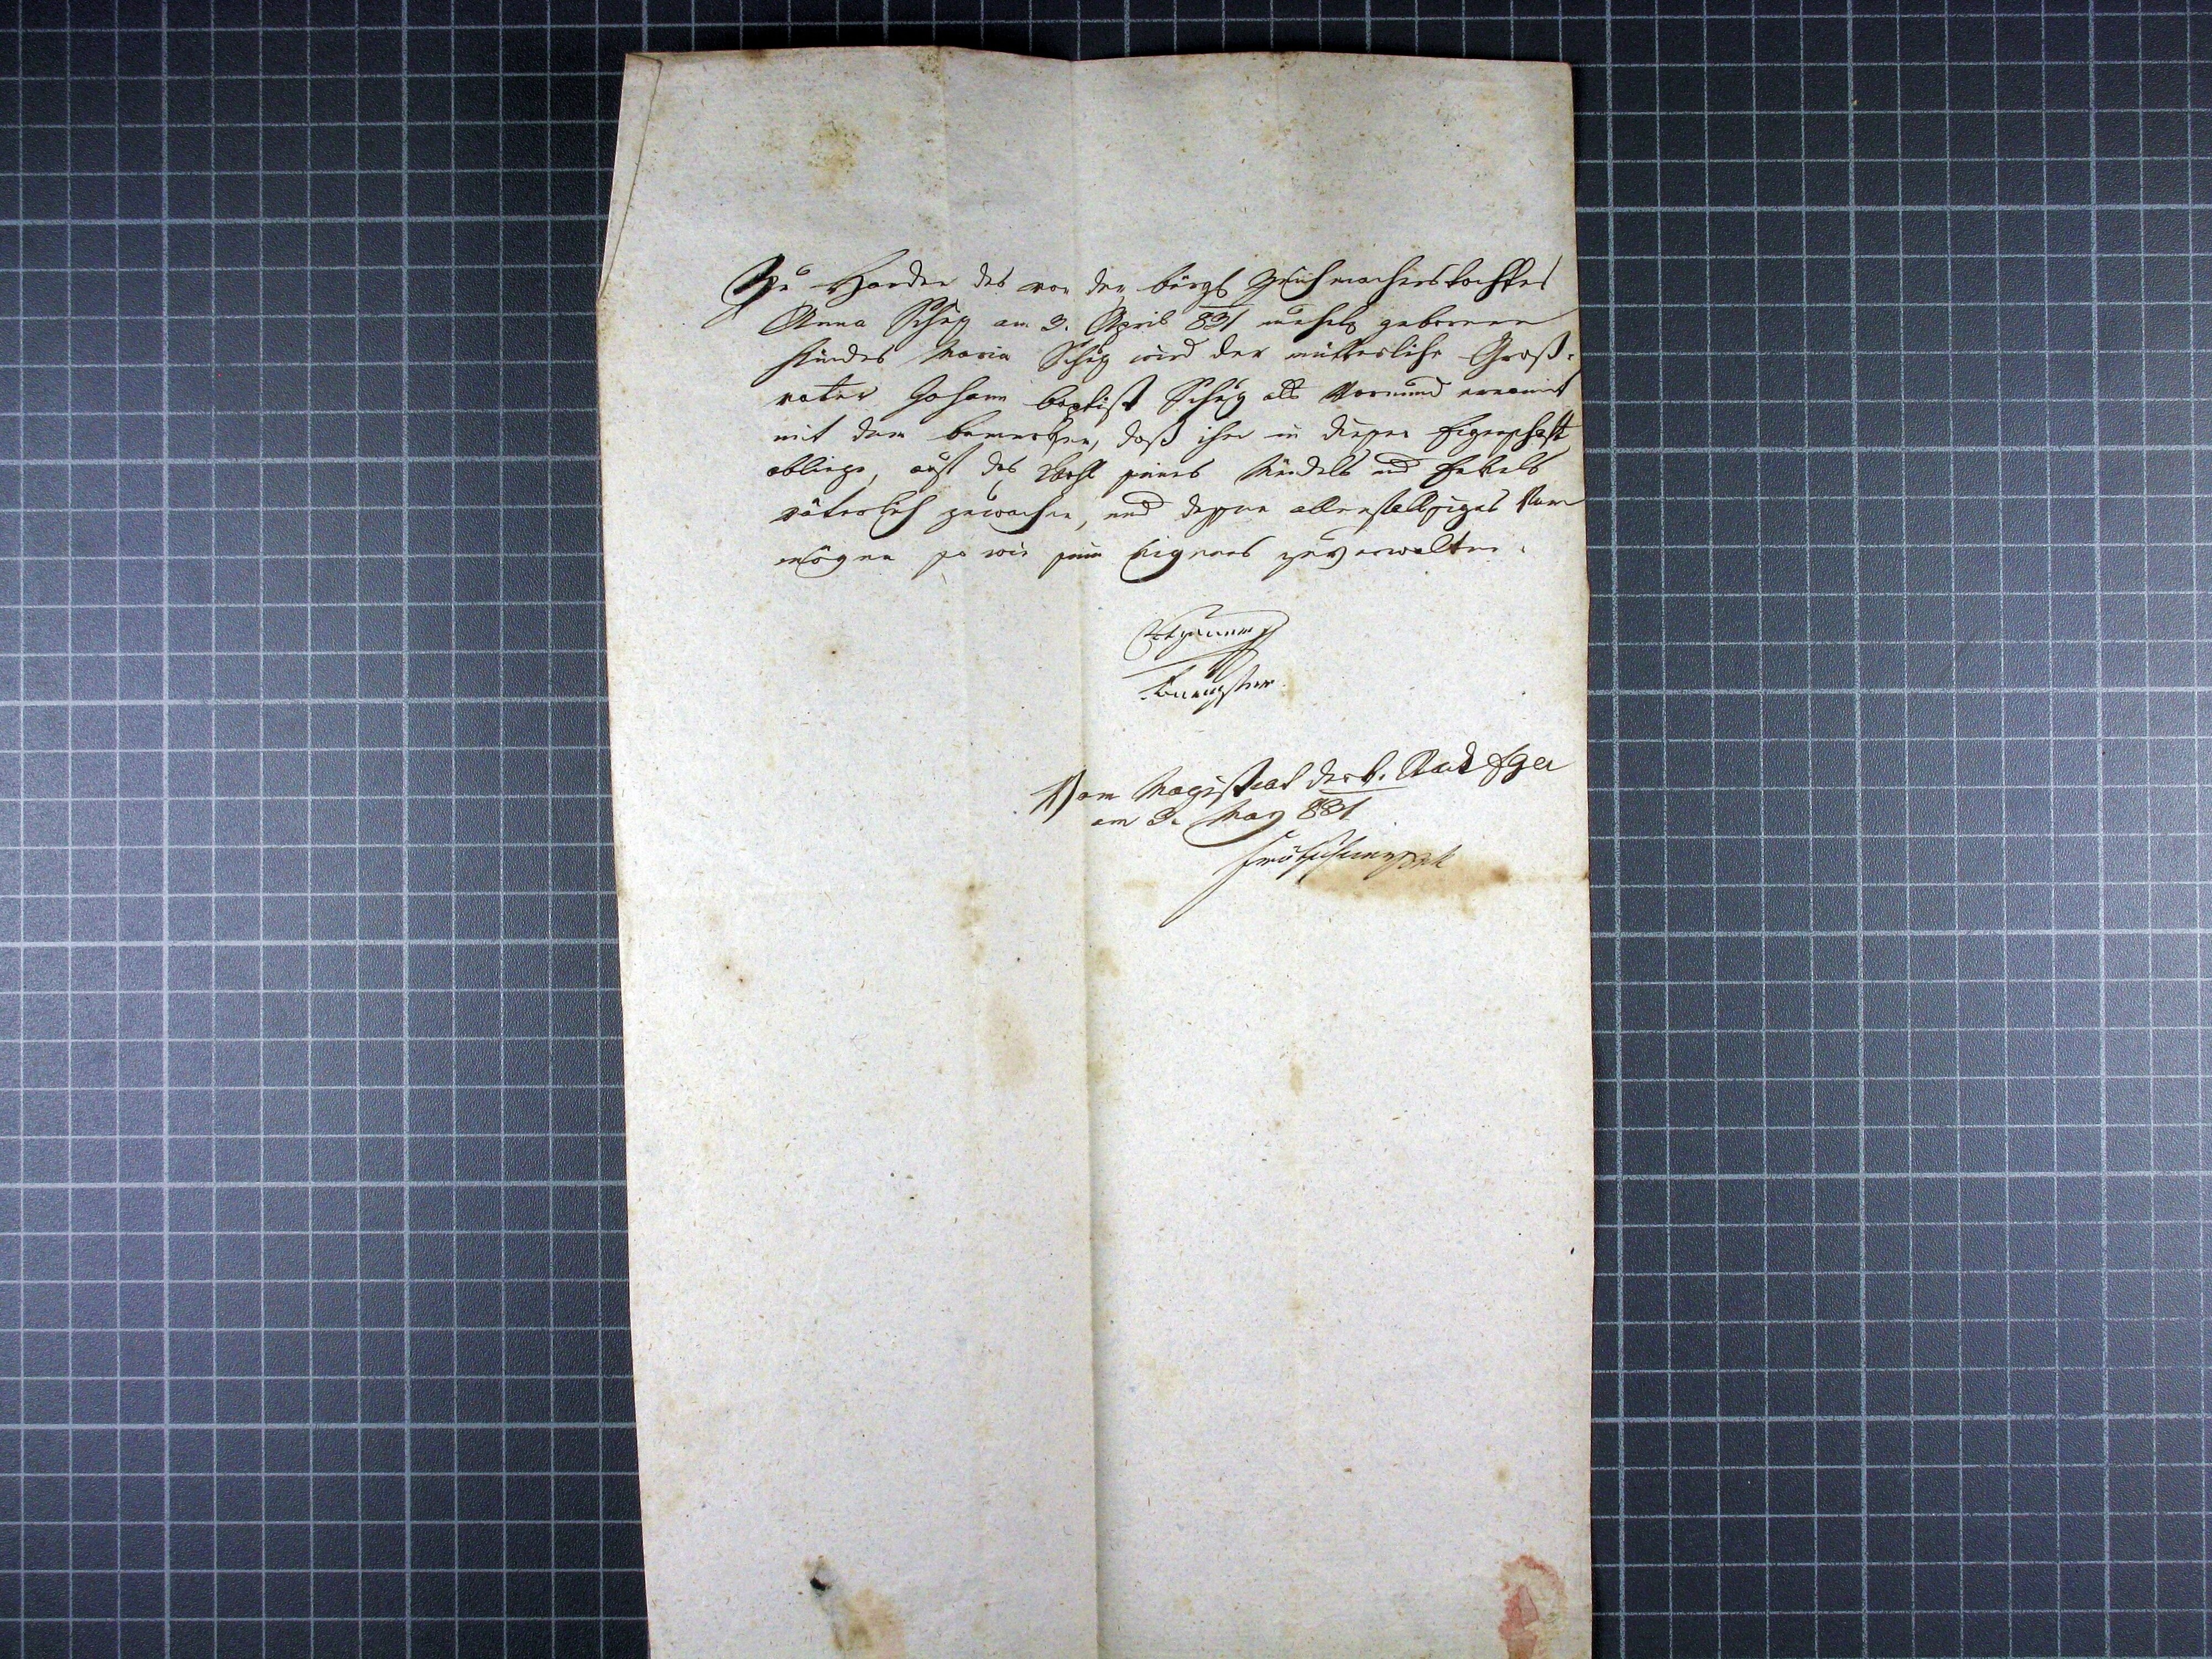 Zu Handen des von der bürgl Zeuchmacherstochter
Anna Schug am 3. April 831 unehelig gebornen
Kindes Maria Schug wird der mütterliche Groß-
vater Johann Baptist Schug als Vormund ernannt
mit dem bemerken, daß ihm in dieser Eigenschaft
obliege, auf das Wohl seines Mündels und Enkels
väterlich zu wachen, und dessen allenfallsiges Ver
mögen so wie sein Eigenes zu verwalten.
Vom Magistrat der k. Stadt Eger
am 3. May 831